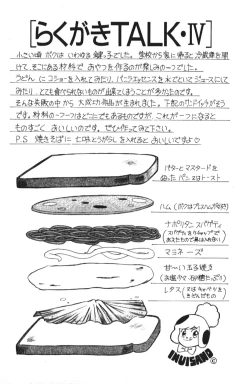 [らくがきTALK・Ⅳ]
小さい頃 ボクは いわゆる 鍵っ子でした。 学校から家に帰ると冷蔵庫を開
け、そこにある材料で おやつを作るのが楽しみの一つでした。
うどんに コショーを入れてみたり、バニラエッセンスを水でといてジュースにして
みたり、とても食べられないものが出来てしまうことが多かったのです。
そんな失敗の中から 大成功作品が生まれました。下記のサンドイッチがそう
です。材料の一つ一つはどこにでもあるものですが、これが一つになると
ものすごく おいしいのです。ぜひ作ってみて下さい。
P.S 焼きそばに 七味とうがらしを入れると おいしいですよ
バターとマスタードを
ぬったパン 又はトースト
ハム (ボクはプレスハムが好き)
ナポリタン スパゲティ
マヨネーズ
甘〜い玉子焼き
レタス (又はキャベツを
きざんだもの)
INUISANO